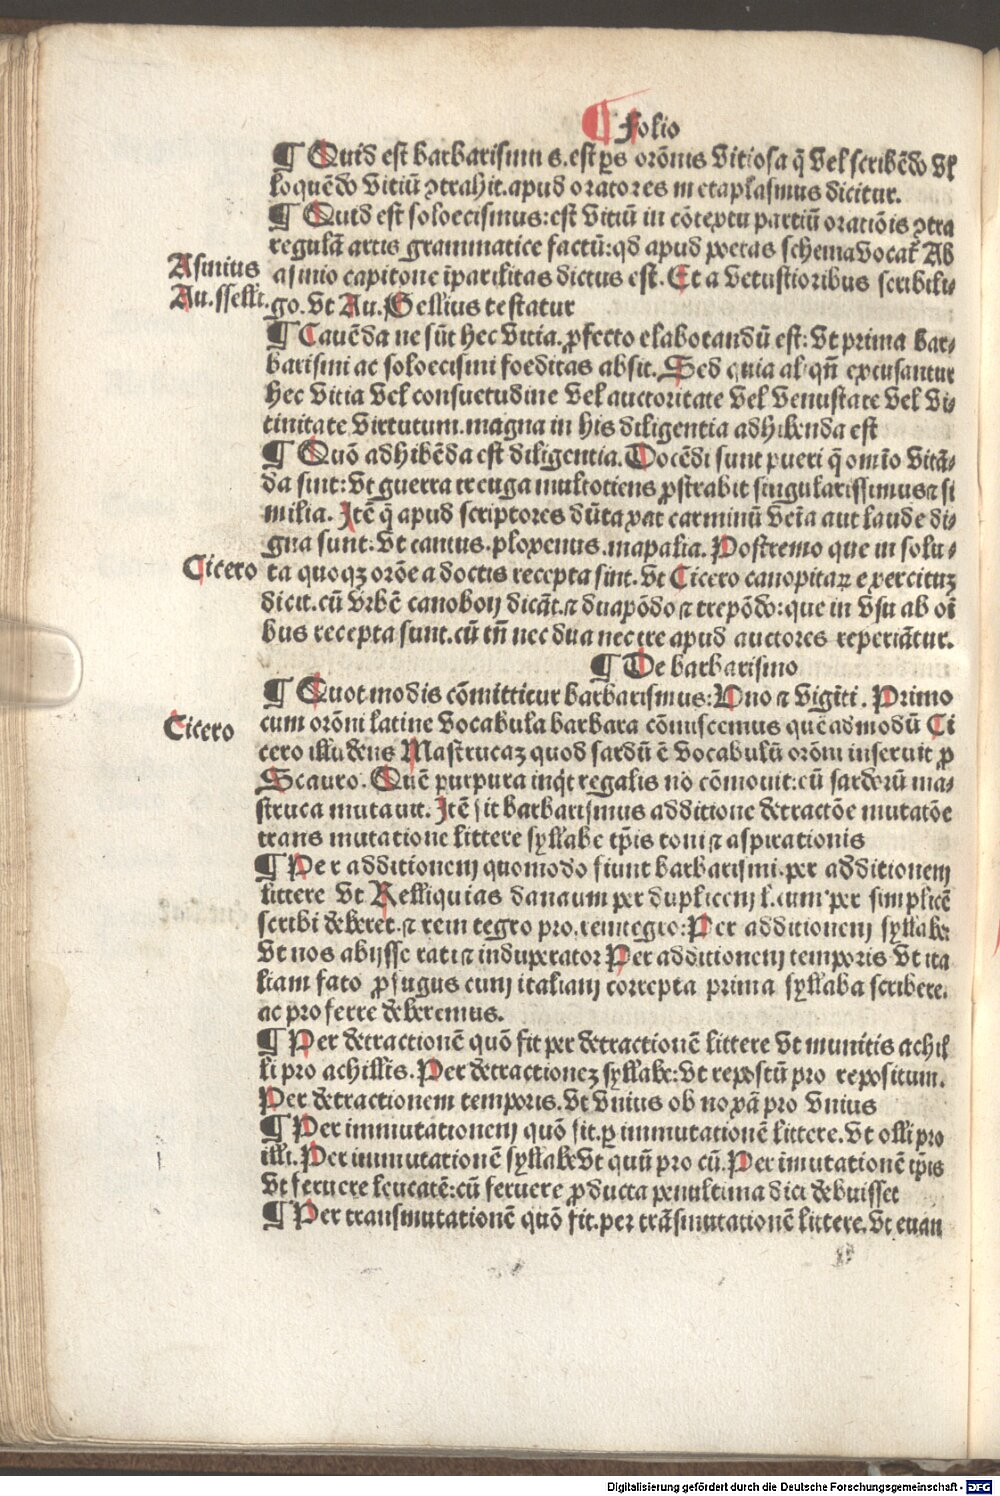 ¶ Folio
¶ Quid est barbarismus. est ꝑs orōnis vitiosa q̄ vel scribēdo vl
loquēdo vitiū ꝯtrahit. apud oratores metaplasmus dicitur.
¶ Quid est soloecismus: est vitiū in cōtextu partiū oratiōis ꝯtra
regulā artis grammatice factū: qd apud poetas schema vocat̉ Ab
Asinius
asinio capitone īparilitas dictus est. Et a vetustioribus scribili⸗
Au. sselli.
go. vt Au. Gellius testatur
¶ Cauēda ne sūt hec vitia. ꝓfecto elaborandū est: vt prima bar⸗
barismi ac soloecismi foeditas absit. Sed quia aliqn̄ excusantur
hec vitia vel consuetudine vel auctoritate vel venustate vel vi⸗
cinitate virtutum. magna in his diligentia adhibenda est
¶ Quō adhibēda est diligentia. Docēdi sunt pueri q̄ omīo vitā⸗
da sint: vt guerra treuga multotiens ꝓstrabit singularissimus ⁊ si
milia. Itē q̄ apud scriptores dūtaxat carminū venia aut laude di⸗
gna sunt: vt camus. ploxenus. mapalia. Postremo que in solu⸗
Cicero
ta quoqꝫ orōe a doctis recepta sint. vt Cicero canopitaꝝ exercituꝫ
dicit. cū vrbē canobon dicāt. ⁊ duapōdo ⁊ trepōdo: que in vsu ab oī
bus recepta sunt. cū tn̄ nec dua nec tre apud auctores reperiātur.
¶ De barbarismo
¶ Quot modis cōmittitur barbarismus: Uno ⁊ vigīti. Primo
Cicero
cum orōni latine vocabula barbara cōmiscemus quēadmodū Ci
cero illudens Mastrucaꝫ quod sardū ē vocabulū orōni inseruit ꝓ
Scauro. Quē purpura inqͥt regalis nō cōmouit: cū sardorū ma⸗
struca mutauit. Itē fit barbarismus additione detractōe mutatōe
transmutatione littere syllabe tꝑis toni ⁊ aspirationis
¶ Per additionem quomodo fiunt barbarismi. per additionem
littere vt Relliquias danaum per duplicem l. cum per simplicē
scribi deberet. ⁊ rem tegro pro. reintegro: Per additionem syllabe
vt nos abijsse rati ⁊ induperator Per additionem temporis vt ita
liam fato ꝓfugus cum italiam correpta prima syllaba scribere.
ac proferre deberemus.
¶ Per detractionē quō fit per detractionē littere vt munitis achil
li pro achillis. Per detractioneꝫ syllabe: vt repostū pro repositum.
Per detractionem temporis. vt vnius ob noxā pro vnius
¶ Per immutationem quō fit. ꝑ immutationē littere. vt olli pro
illi. Per immutationē syllabe vt quū pro cū. Per īmutationē tꝑis
vt feruere leucatē: cū feruere ꝓducta penultima dici debuisset
¶ Per transmutationē quō fit. per trāsmutationē littere. vt euan
Digitalisierung gefördert durch die Deutsche Forschungsgemeinschaft - DFG